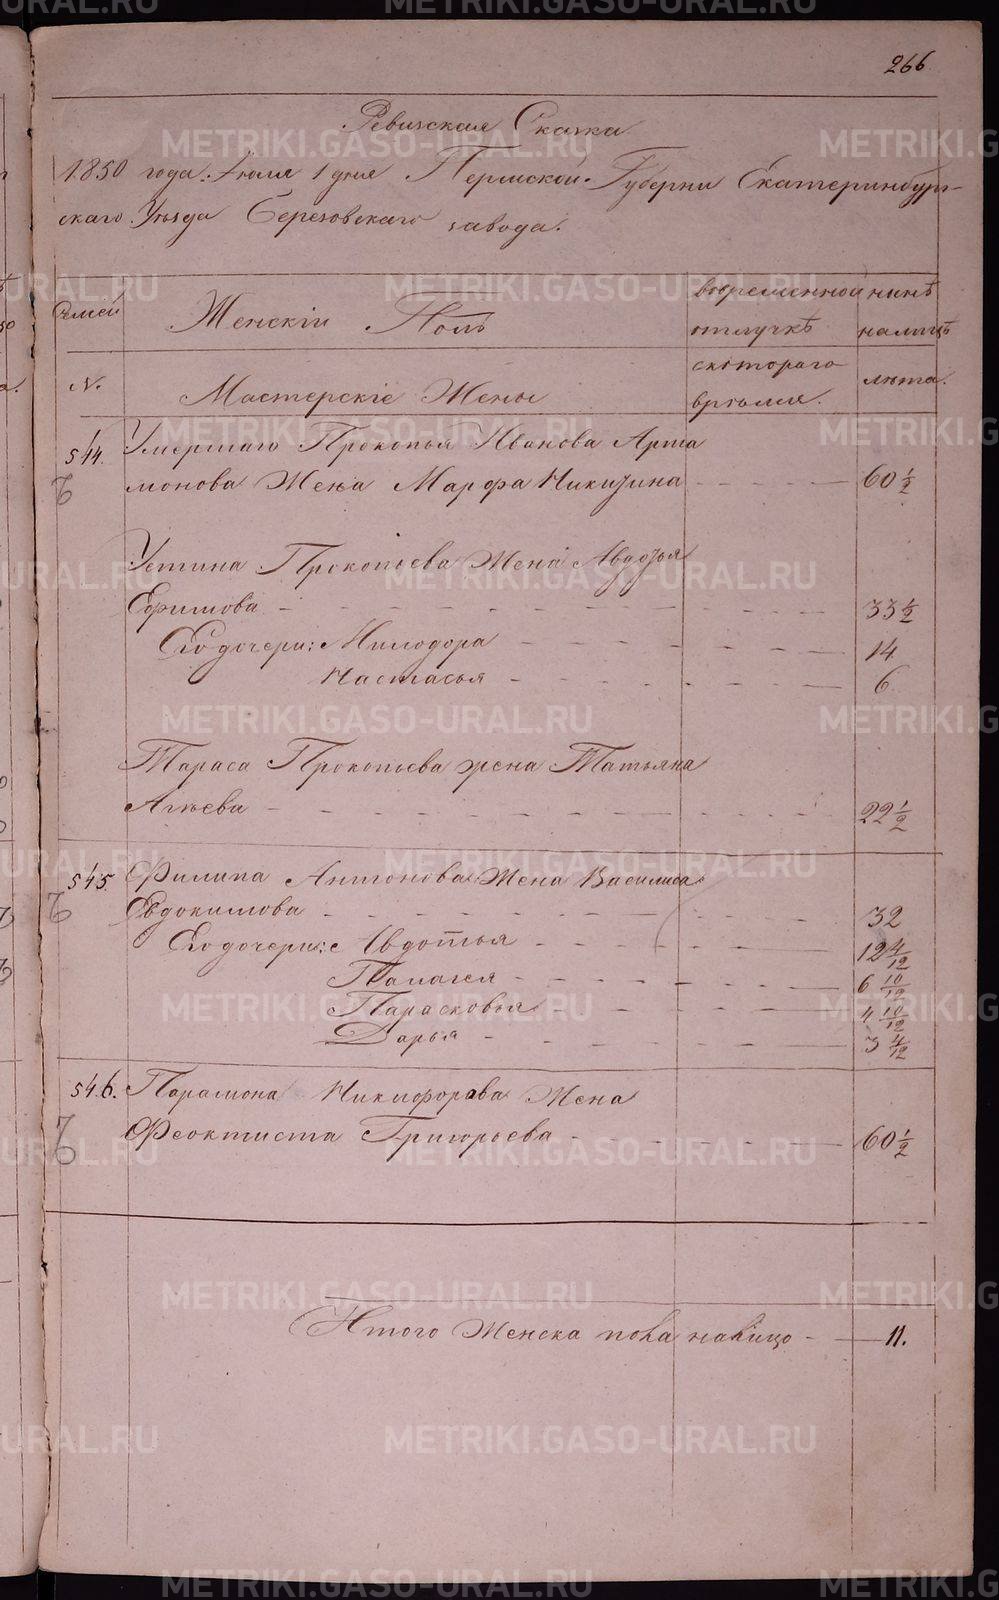 266
Ревизская Сказка
1850 года: Июля 1 дня Пермской Губернии Екатеринбург-
скаго Уезда Березовскаго завода.
Семей Женскiй Полъ вовременной нынѣ
отлучкѣ налицѣ
№ Мастерскiе Жены скотораго лѣта.
времѣя.
544. Умершаго Прокопья Иванова Арта
монова Жена Марфа Никитина 60 1/2
Устина Прокопьева Жена Авдотья
Ефимова 33 1/2
Его дочери: Минодора 14
Настасья 6
Тараса Прокопьева жена Татьяна
Агѣева 22 1/2
545. Филипа Антонова Жена Василиса
Евдокимова 32
Его дочери: Авдотья 12 4/12
Палагея 6 10/12
Парасковья 4 10/12
Дарья 3 4/12
546. Парамона Никифорава Жена
Феоктиста Григорьева 60 1/2
Итого Женска пола налицо 11.
METRIKI.GASO-URAL.RU